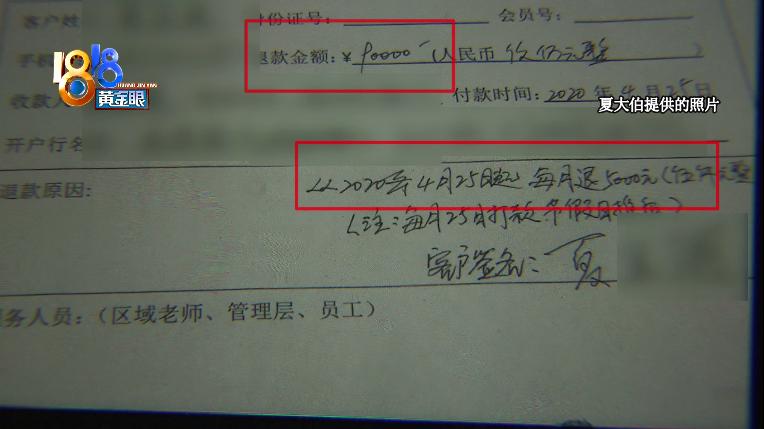 客户姓 身份证号: 会员号:
手机 退款金额:¥ 90000 (人民币 仟元整 )
收款人 付款时间: 2020 年 4 月 25 日
开户行名
退款原因: 从2020年4月25日起 每月退5000元(伍仟元整
(注:每月25日打款 节假日推后)
客户签名: 夏
服务人员:(区域老师、管理层、员工)
1818
HUANG JIN YAN
黄金眼
夏大伯提供的照片